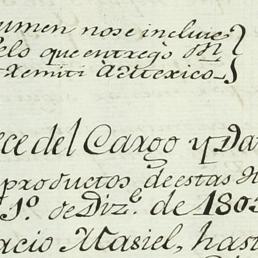 umen no se incluie
elo que entregò Dn
remiti à Mexico
ece del Cargo y Da
productos de estas
1º. de Dize. de 180
acio Masiel, has